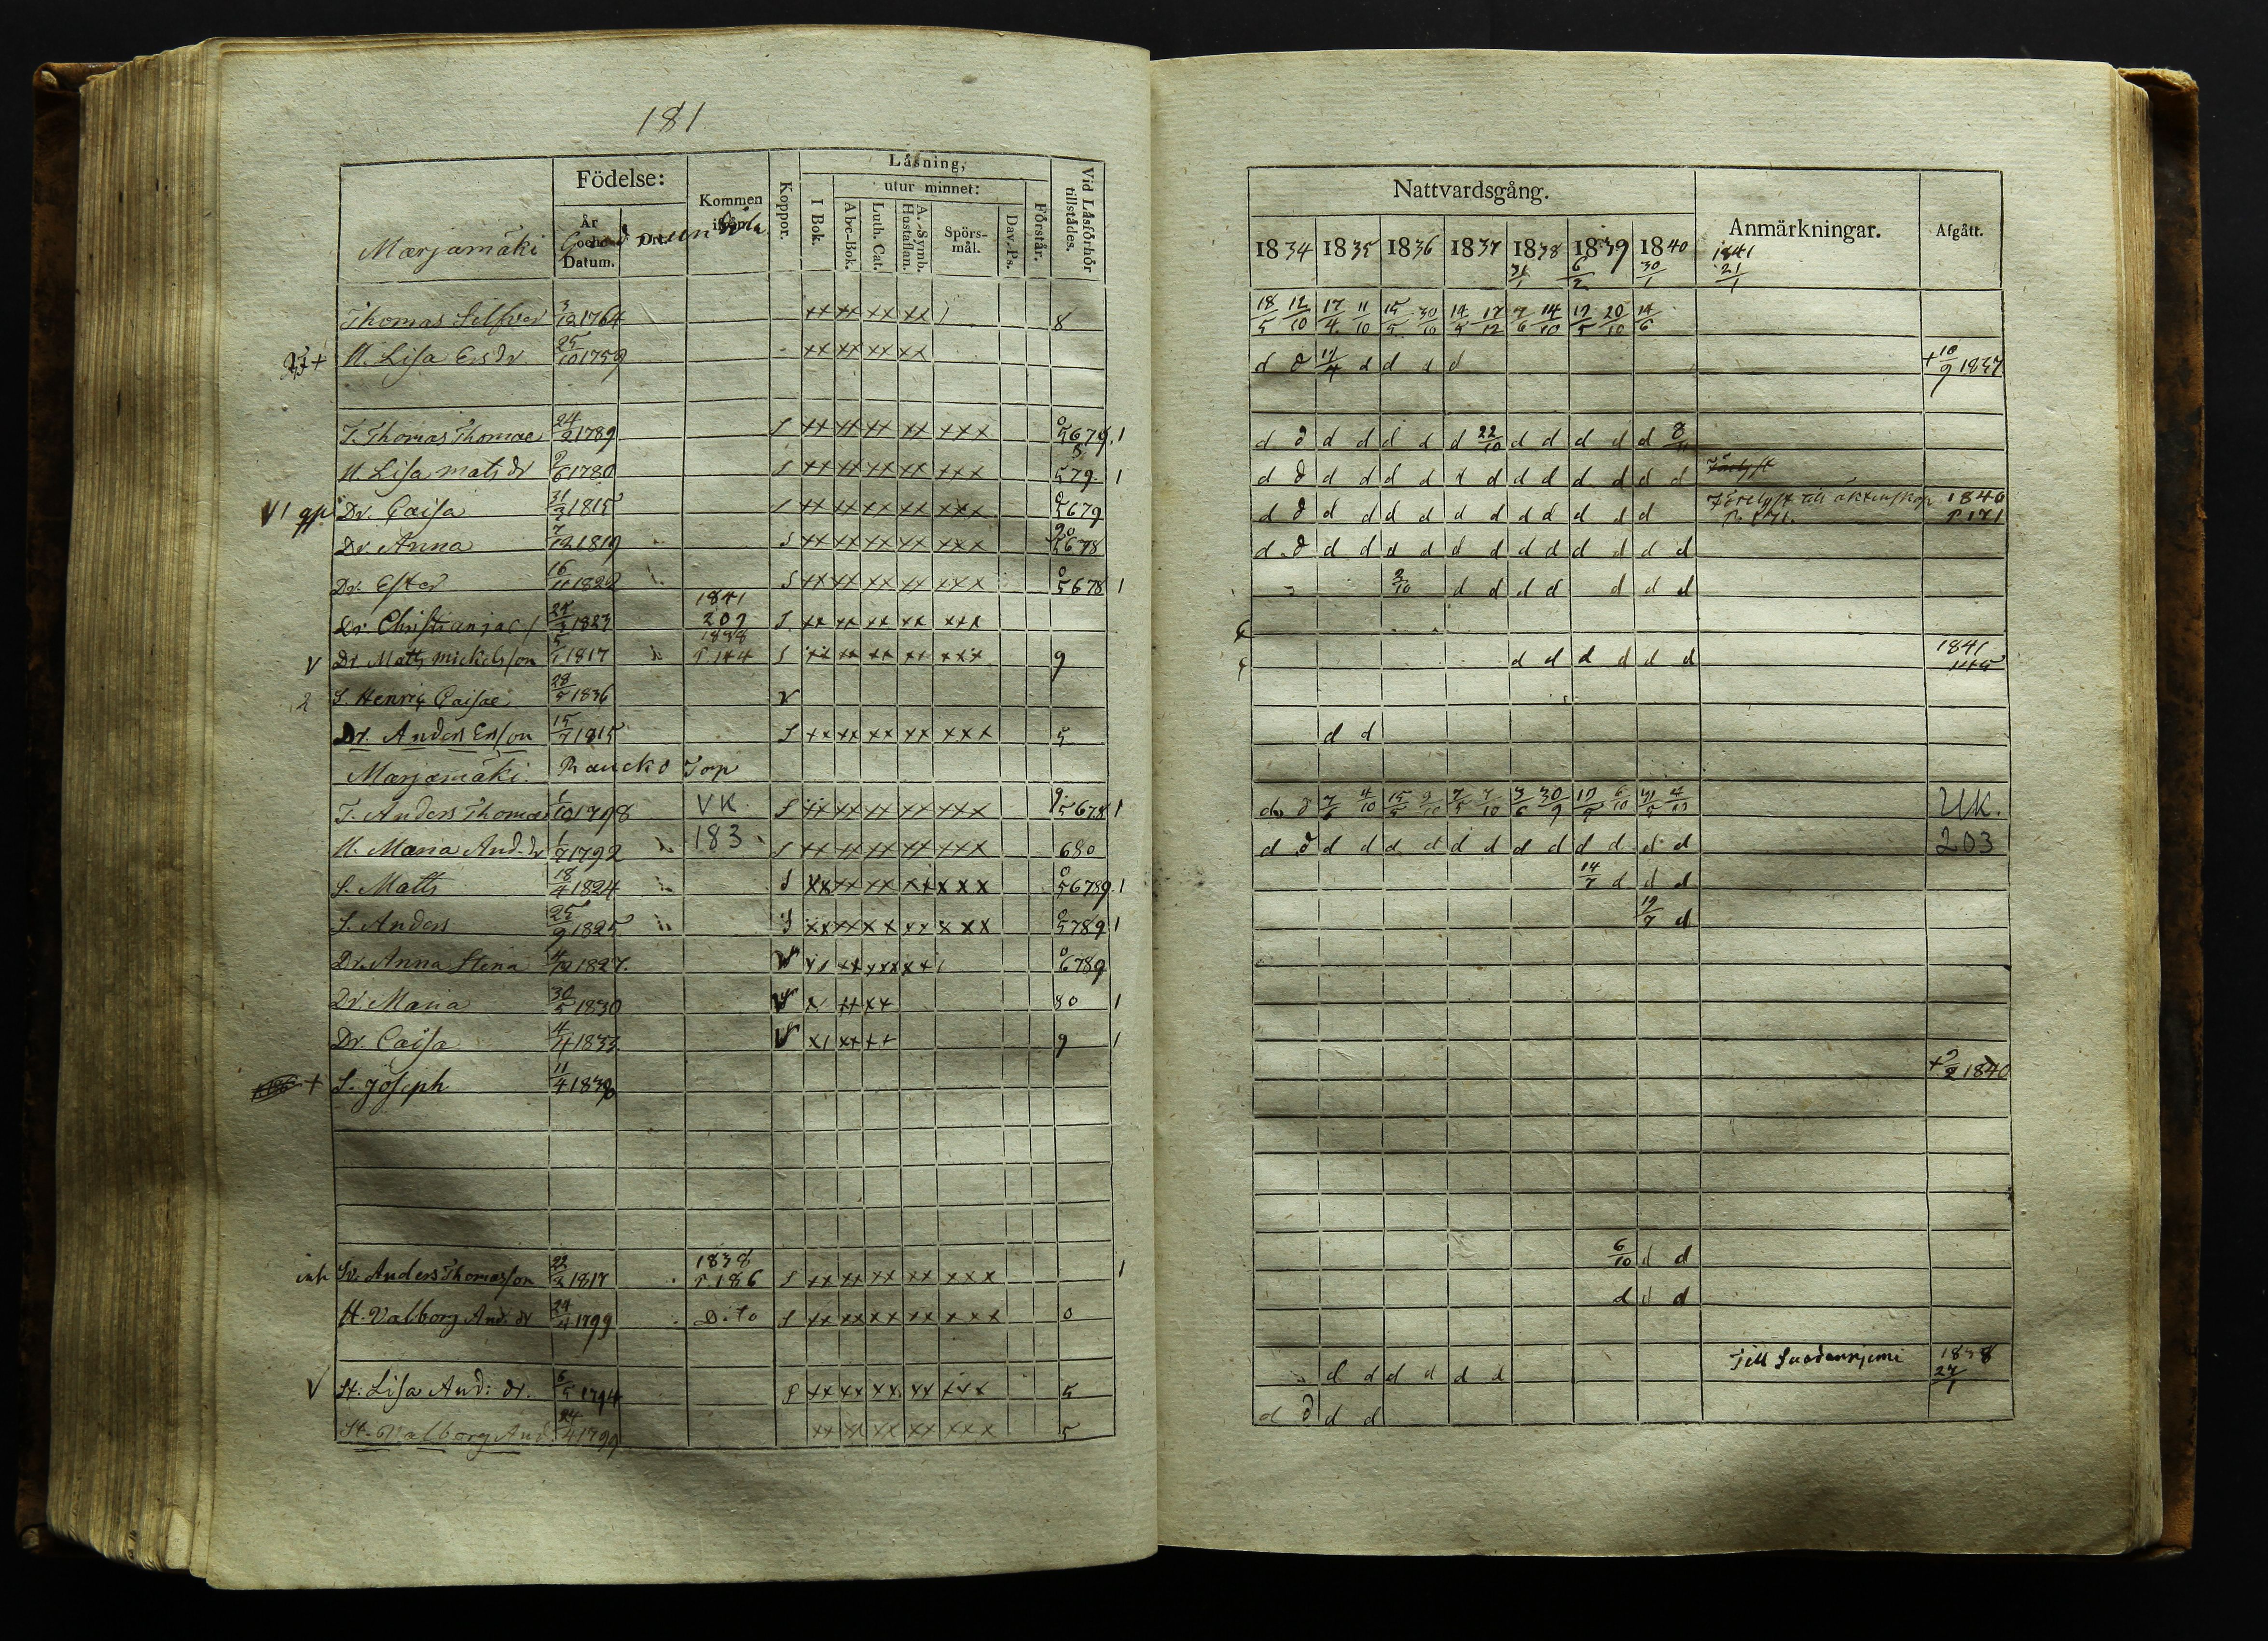 181
Födelse:
Kommen ifrån
Koppor.
Läsning,
utur minnet:
I Bok.
Abc-Bok.
Luth. Cat.
A.-Symb. Hustaflan.
Spörs-mål.
Dav. Ps.
Förstår.
Vid Läsförhör tillstädes.
År och Datum.
Ort.
Marjamäki
Thomas Silfver 3/12 1764 xx xx xx xx 8
H. Lisa Ersdr 25/10 1759 xx xx xx xx
T. Thomas Thomae 24/2 1789 S xx xx xx xx xxx
H. Lisa Mats dr 9/6 1780 S xx xx xx xx xxx 579. 1
Dr. Caisa 31/3 1815 xx xx xx xx xxx 5679
Dr. Anna 7/12 1819 S xx xx xx xx xxx
Dr. Ester 16/11 1822 S xx xx xx xx xxx 5678 1
Dr Christian 1823 1841 209 S xx xx xx xx xxx
V Dr. Matts Mickelsson 1817 1838 p 144 S xx xx xx xx xxx 9
2 S. Henric Caisae 28/5 1836 v
Dr. Anders Ersson 15/7 1815 S xx xx xx xx xxx 5
Marjamäki. Rancko Torp
T. Anders Thomae 1/10 1798 VK. S xx xx xx xx xxx 5678 1
H. Maria And. dr 1/7 1792 183 S xx xx xx xx xxx 680
S. Matts 18/4 1824 S xx xx xx xx xxx 56789. 1
S. Anders 25/9 1825 S xx xx xx xx xxx 5789 1
Dr. Anna Stina 1827. V 6789
Dr. Maria 30/5 1830 V 80 1
Dr. Caisa 4/4 1833 V 9 1
+ S. Joseph 11/4
inh Sv. Anders Thomasson 22/3 1817 1838 p 186 S xx xx xx xx xxx 1
H. Valborg And. dr 24/4 1799 Dito S xx xx xx xx xxx 0
V H. Lisa And: dr. 6/5 1794 S xx xx xx xx xxx 5
H. Valborg And 24/4 1799 xx xx xx xx xxx 5
Nattvardsgång.
Anmärkningar.
Afgått.
1834 1835 1836 1837 1838 1839 1840 1841
31/1 6/2 30/1 21/1
18/5 12/10 17/4 11/10 15/5 30/10 14/5 17/12 7/6 14/10 17/5 20/10 14/6
d d 17/4 d d d d + 18/9 1837
d d d d d d d 22/10 d d d d d 8/11
d d d d d d d d d d d d d d
d d d d d d d d d d d d d Förelyst till äktenskap p 171. 1840 p 171
d d d d d d d d d d d d d d
2/10 d d d d d d d
d d d d d d 1841 145
d d
d d 7/6 4/10 15/5 9/10 7/5 7/10 3/6 30/9 17/5 6/10 UK.
d d d d d d d d d d d d d d 203
14/7 d d d
19/7 d
+ 9/2 1840
6/10 d d
d d d
d d d d d d Till Suodenniemi 1838 27/1
d d d d